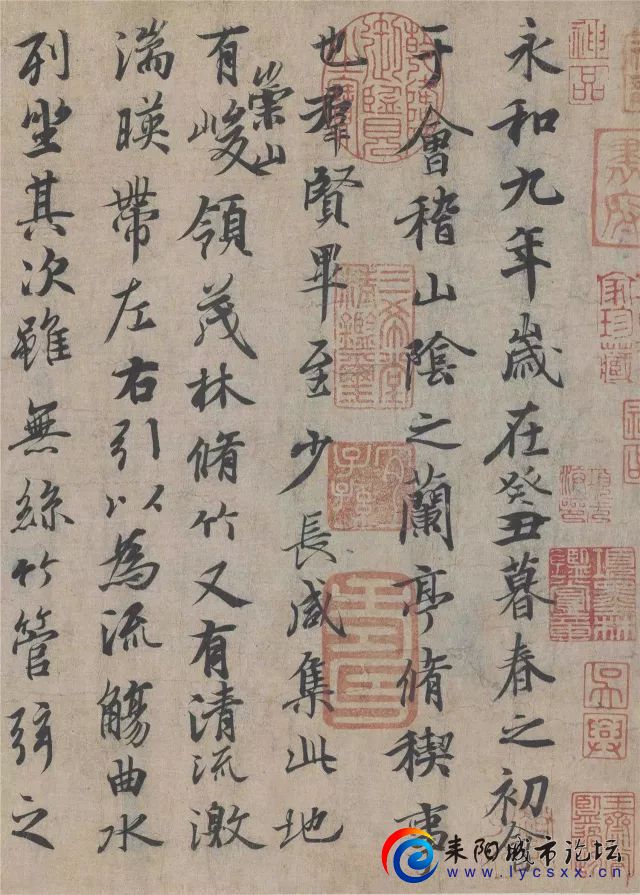 永和九年歲在癸丑暮春之初會
于會稽山陰之蘭亭脩稧事
也羣賢畢至少長咸集此地
有崇山峻領茂林脩竹又有清流激
湍暎帶左右引以為流觴曲水
列坐其次雖無絲竹管弦之
神品
珍藏
耒阳城市论坛
www.lycsxx.cn